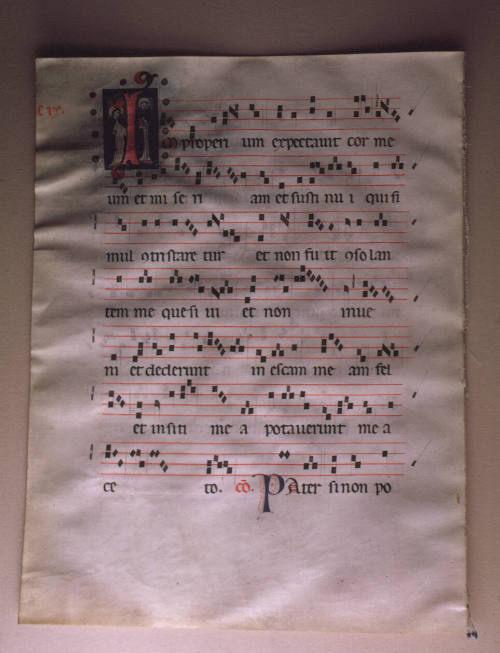 Improperi um expectavit cor me
um et mi se ri am et susti nu i qui si
mul 9tristare tur et non fu it 9so lan
tem me que si vi et non inve
ni et dederunt in escam me am fel
et in siti me a potaverunt me a
ce to. cō. Pater si non po